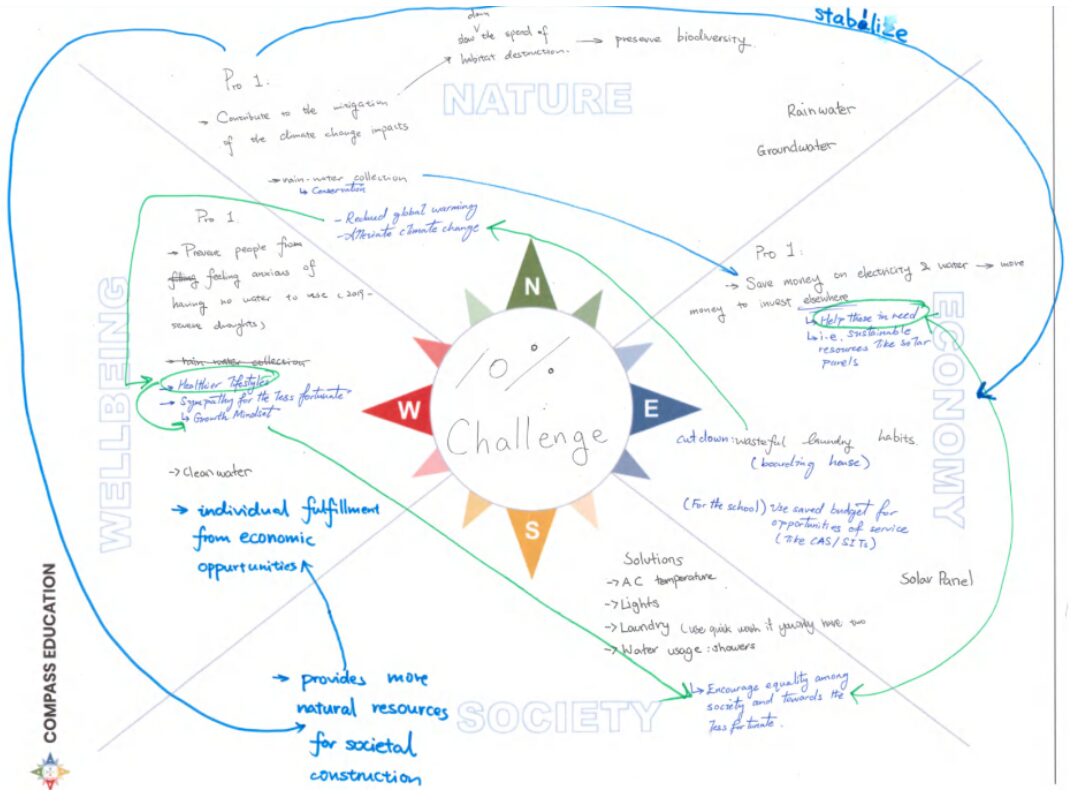 stabilize
down
slow the speed of
habitat destruction. → preserve biodiversity.
Pro 1:
NATURE
→ Contribute to the mitigation
of the climate change impacts
Rainwater
Groundwater
→ rain-water collection
↳ Conservation
- Reduced global warming
- Alleviate climate change
Pro 1
→ Prevent people from
feeling anxious of
having no water to use (2019-
severe droughts)
→ rain water collection
→ Healthier lifestyles
→ Sympathy for the less fortunate
↳ Growth Mindset
→ Clean water
→ individual fulfillment
from economic
oppurtunities
WELLBEING
Pro 1:
→ Save money on electricity & water → more
money to invest elsewhere
↳ Help those in need
↳ i.e. sustainable
resources like solar
panels
ECONOMY
N
W
E
S
%
Challenge
cut down: wasteful laundry habits.
(boarding house)
(For the school) Use saved budget for
opportunities of service
(like CAS/SITs)
Solar Panel
Solutions
→ AC temperature
→ Lights
→ Laundry (use quick wash if you only have two
→ Water usage: showers
↳ Encourage equality among
society and towards the
less fortunate.
→ provides more
natural resources
for societal
construction
SOCIETY
COMPASS EDUCATION